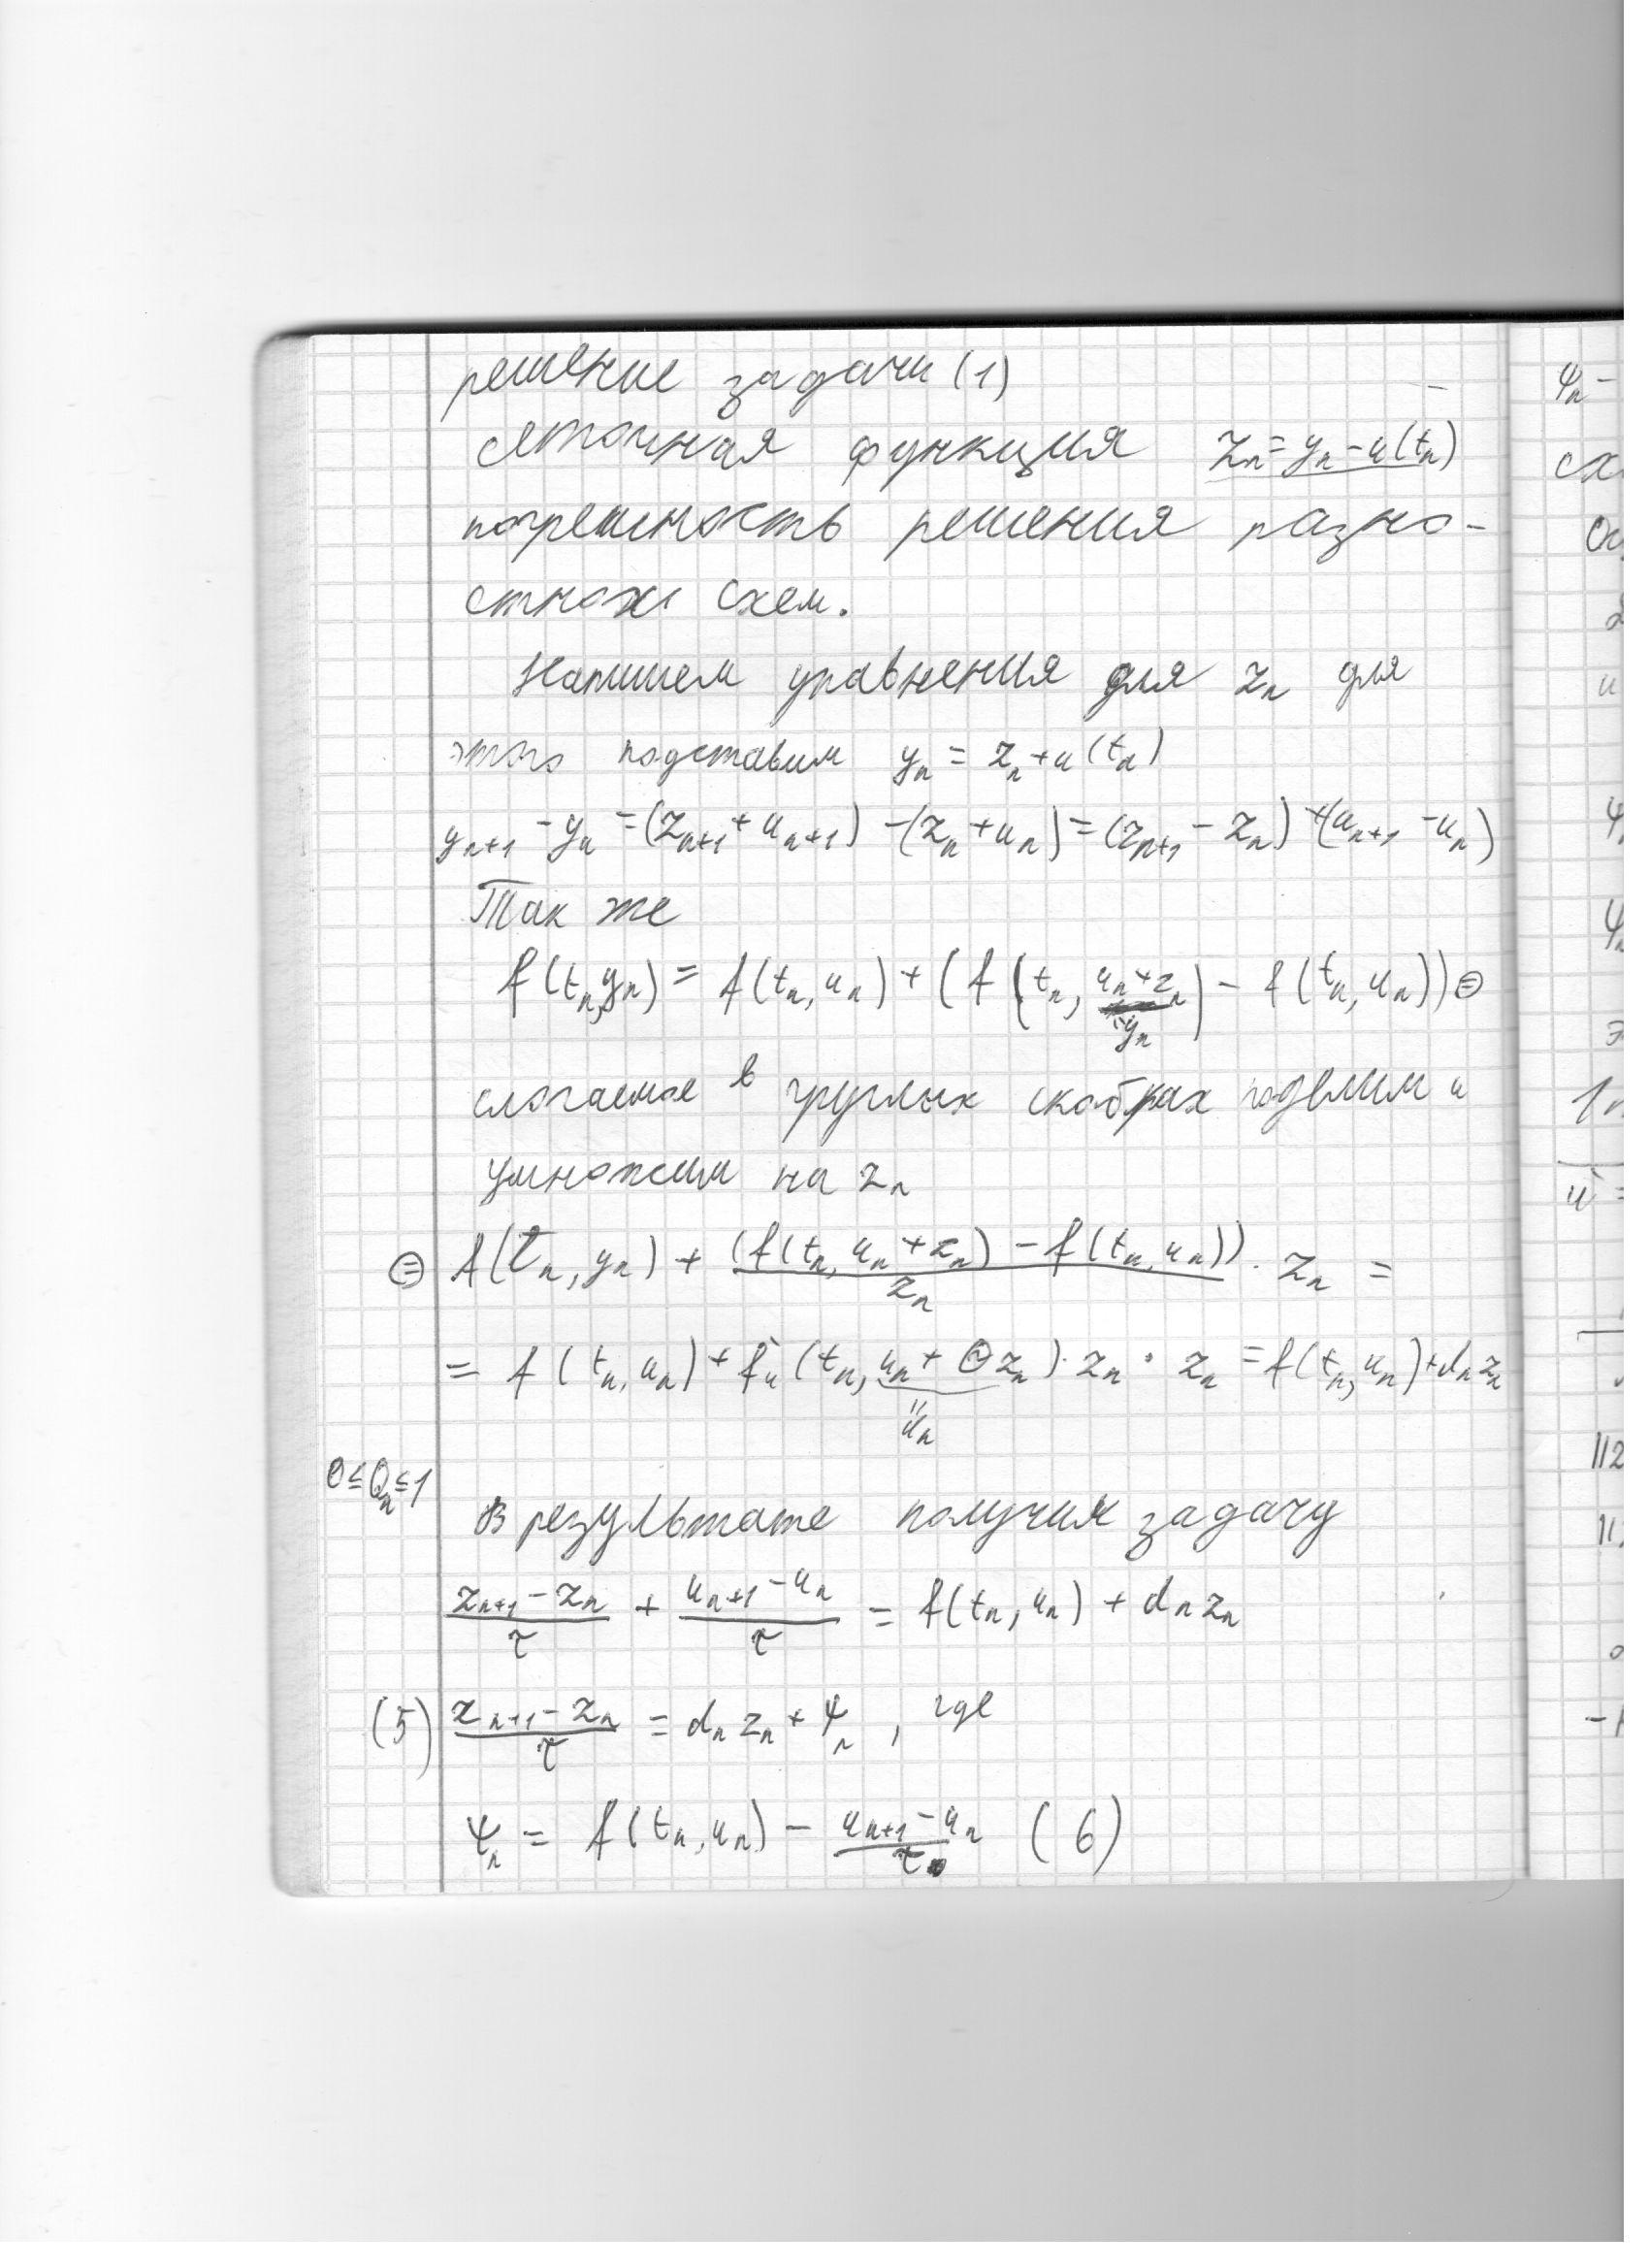 решение задачи (1)
сеточная функция zₙ = yₙ - u(tₙ)
погрешность решения разно-
стной схем.
Напишем уравнения для zₙ для
этого подставим yₙ = zₙ + u(tₙ)
yₙ₊₁ - yₙ = (zₙ₊₁ + uₙ₊₁) - (zₙ + uₙ) = (zₙ₊₁ - zₙ) + (uₙ₊₁ - uₙ)
Так же
f(tₙ, yₙ) = f(tₙ, uₙ) + (f(tₙ, uₙ + zₙ) - f(tₙ, uₙ)) ⊜
yₙ
слагаемое в круглых скобках поделим и
умножим на zₙ
⊜ f(tₙ, yₙ) + (f(tₙ, uₙ + zₙ) - f(tₙ, uₙ))/zₙ · zₙ =
= f(tₙ, uₙ) + fᵤ(tₙ, uₙ + Θzₙ) · zₙ · zₙ = f(tₙ, uₙ) + dₙzₙ
ũₙ
0 ≤ Θₙ ≤ 1
В результате получим задачу
(zₙ₊₁ - zₙ)/τ + (uₙ₊₁ - uₙ)/τ = f(tₙ, uₙ) + dₙzₙ
(5) (zₙ₊₁ - zₙ)/τ = dₙzₙ + ψₙ, где
ψₙ = f(tₙ, uₙ) - (uₙ₊₁ - uₙ)/τ (6)